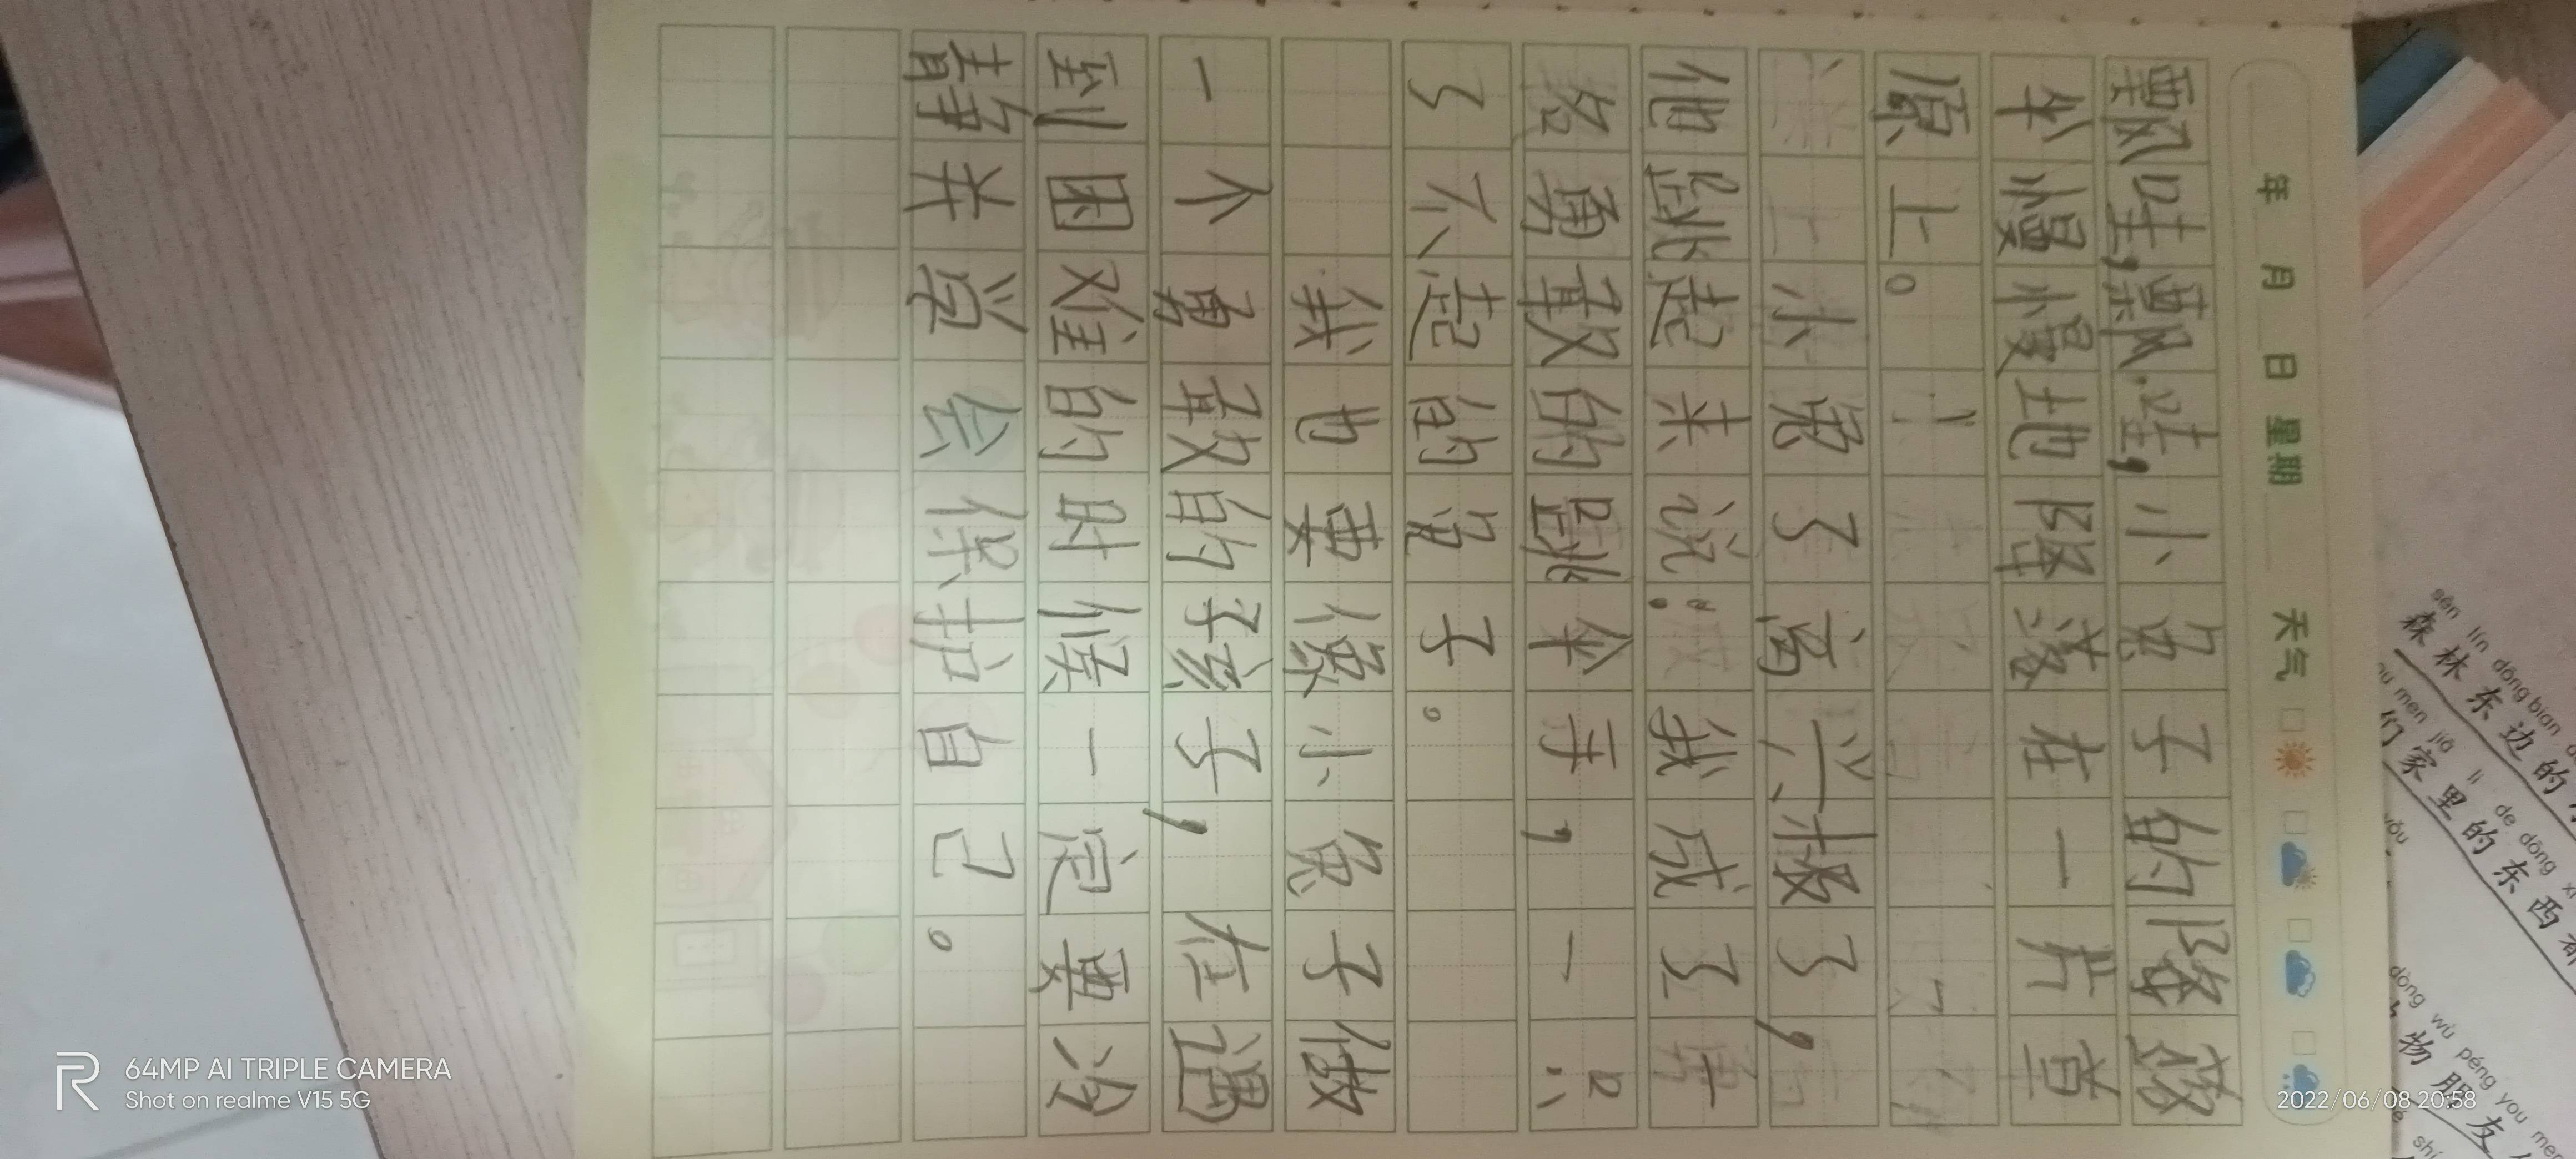 年 月 日 星期 天气
飘哇,飘哇,小兔子的降落
伞慢慢地降落在一片草
原上。
小兔了高兴极了,
他跳起来说:我成了
名勇敢的跳伞手,一只
了不起的兔子。
我也要像小兔子做
一个勇敢的孩子,在遇
到困难的时候一定要冷
静并学会保护自己。
sēn lín dōng biān
森林东边的
men jiā li de dōng
们家里的东西
dòng wù péng you men
物朋友
64MP AI TRIPLE CAMERA
Shot on realme V15 5G
2022/06/08 20:58